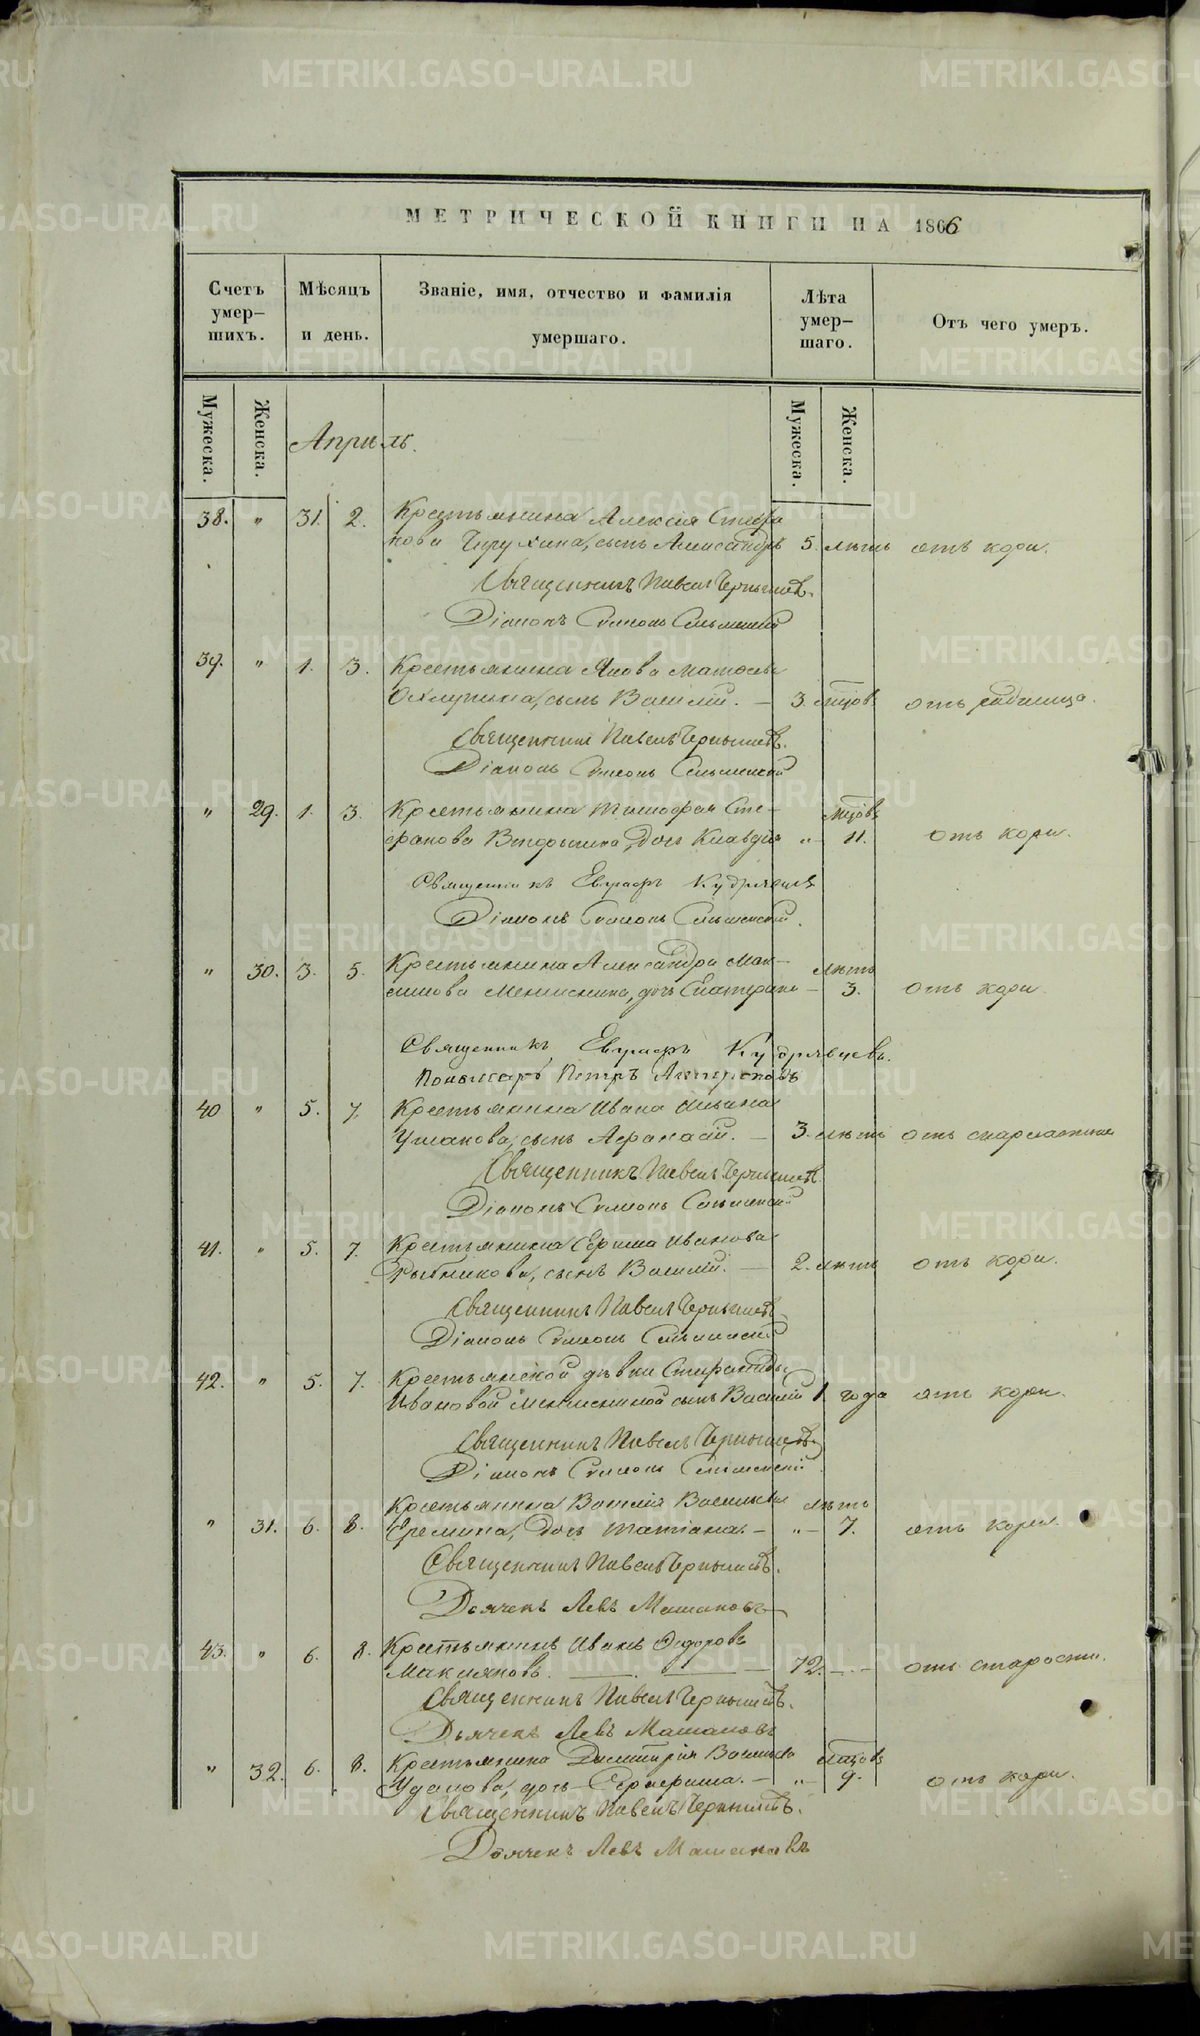 МЕТРИЧЕСКОЙ КНИГИ НА 1866
Счетъ умер-шихъ.
Мѣсяцъ и день.
Званіе, имя, отчество и фамилія умершаго.
Лѣта умер-шаго.
Отъ чего умеръ.
Мужеска. Женска.
Апрѣль.
Мужеска. Женска.
38. " 31. 2. Крестьянина Алексія Стефа
нова сынъ Александръ 5 лѣтъ отъ кори.
Священникъ Павелъ Чернышевъ.
Діаконъ Симеонъ
39. " 1. 3. Крестьянина Якова
Охлупина, сынъ Василій. — 3. мѣсяцовъ отъ родимца.
Священникъ Павелъ Чернышевъ.
Діаконъ Симеонъ
" 29. 1. 3. Крестьянина Тимофея Сте-
фанова Вторыгина, дочь Клавдія " 11. мцовъ отъ кори.
Священникъ Евграфъ Кудрявцевъ
Діаконъ Симеонъ
" 30. 3. 5. Крестьянина Александра Мак-
симова дочь Екатерина — 3. лѣтъ отъ кори.
Священникъ Евграфъ Кудрявцевъ.
Пономарь Петръ
40 " 5. 7. Крестьянина Ивана Ильина
Ушакова, сынъ Афанасій. — 3. лѣтъ отъ скарлатины
Священникъ Павелъ Чернышевъ
Діаконъ Симеонъ
41. " 5. 7. Крестьянина Ефима Иванова
Рыбникова, сынъ Василій. — 2. лѣтъ отъ кори.
Священникъ Павелъ Чернышевъ
Діаконъ Симеонъ
42. " 5. 7. Крестьянской дѣвки Стефаниды
Ивановой сынъ Василій 1 года отъ кори.
Священникъ Павелъ Чернышевъ
Діаконъ Симеонъ
Крестьянина Василія Васильева лѣтъ
" 31. 6. 8. Еремина, дочь Татіана. — " — 7. отъ кори.
Священникъ Павелъ Чернышевъ.
Дьячекъ Левъ Машановъ
43. " 6. 8. Крестьянинъ Иванъ Ѳедоровъ
Макляковъ. — — — 72. — — отъ старости.
Священникъ Павелъ Чернышевъ.
Дьячекъ Левъ Машановъ
" 32. 6. 8. Крестьянина Димитрія Васильева мцовъ
дочь — " — 9. отъ кори.
Священникъ Павелъ Чернышевъ.
Дьячекъ Левъ Машановъ
METRIKI.GASO-URAL.RU